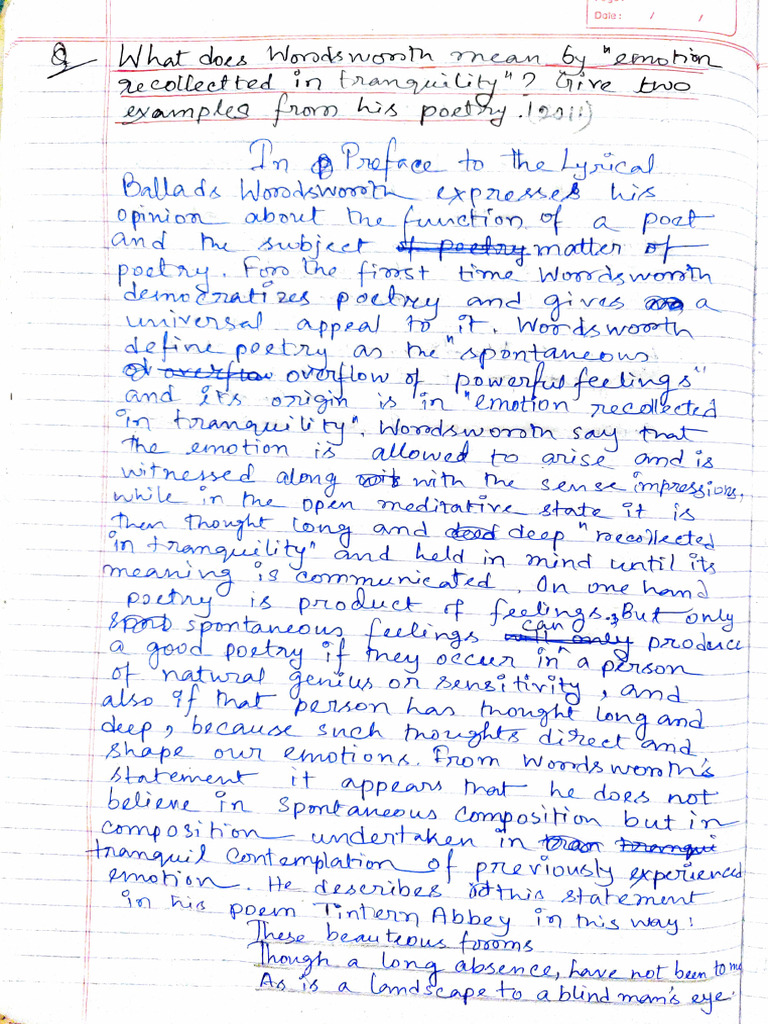 Date: / /
Q What does Wordsworth mean by "emotion
recollectted in tranquility"? Give two
examples from his poetry. (2011)
In Preface to the Lyrical
Ballads Wordsworth expresses his
opinion about the function of a poet
and the subject of poetry matter of
poetry. For the first time Wordsworth
democratizes poetry and gives a
universal appeal to it. Wordsworth
define poetry as the "spontaneous
overflow overflow of powerful feelings"
and its origin is in "emotion recollected
in tranquility". Wordsworth say that
the emotion is allowed to arise and is
witnessed along with the sense impressions,
while in the open meditative state it is
then thought long and deep "recollected
in tranquility" and held in mind until its
meaning is communicated. On one hand
poetry is product of feelings. But only
spontaneous feelings will only can produce
a good poetry if they occur in a person
of natural genius or sensitivity, and
also if that person has thought long and
deep, because such thoughts direct and
shape our emotions. From Wordsworth's
statement it appears that he does not
believe in spontaneous composition but in
composition undertaken in tran tranqui
tranquil contemplation of previously experienced
emotion. He describes this statement
in his poem Tintern Abbey in this way:
These beauteous forms
Though a long absence, have not been to me
As is a landscape to a blind man's eye.